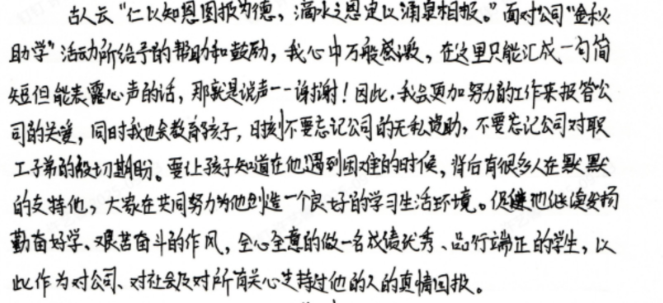 古人云“仁以知恩图报为德，滴水之恩定以涌泉相报。”面对公司“金秋
助学”活动所给予的帮助和鼓励，我心中万般感激，在这里只能汇成一句简
短但能表露心声的话，那就是说声--谢谢！因此，我会更加努力的工作来报答公
司的关爱，同时我也会教育孩子，时刻不要忘记公司的无私资助，不要忘记公司对职
工子弟的殷切期盼。要让孩子知道在他遇到困难的时候，背后有很多人在默默
的支持他，大家在共同努力为他创造一个良好的学习生活环境。促使他继续发扬
勤奋好学、艰苦奋斗的作风，全心全意的做一名成绩优秀、品行端正的学生，以
此作为对公司、对社会及对所有关心支持过他的人的真情回报。